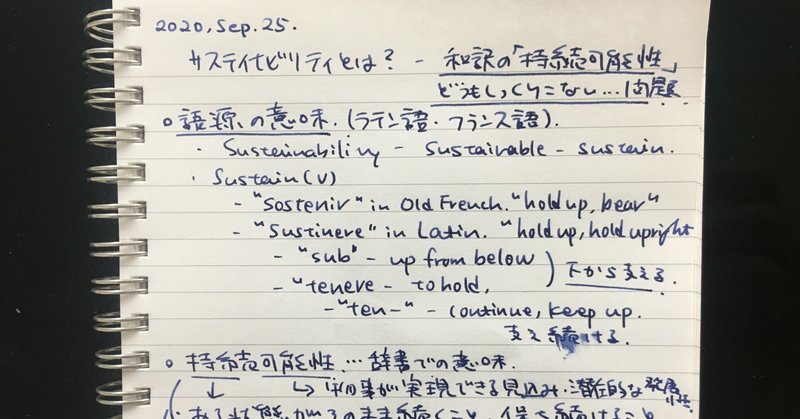 2020, Sep. 25.
サステイナビリティとは? - 和訳の「持続可能性」
どうもしっくりこない…問題
○ 語源の意味. (ラテン語・フランス語).
・ Sustainability - Sustainable - sustain.
・ Sustain (v)
- "Sostenir" in Old French. "hold up, bear"
- "Sustinere" in Latin. "hold up, hold upright
- "sub" - up from below
) 下から支える.
- "tenere - to hold,
- "ten-" - continue, keep up.
支え続ける.
○ 持続可能性 … 辞書での意味.
↓ ↳ 物事が実現できる見込み. 潜在的な発展性
ある状態がそのまま続くこと 保ち続けること